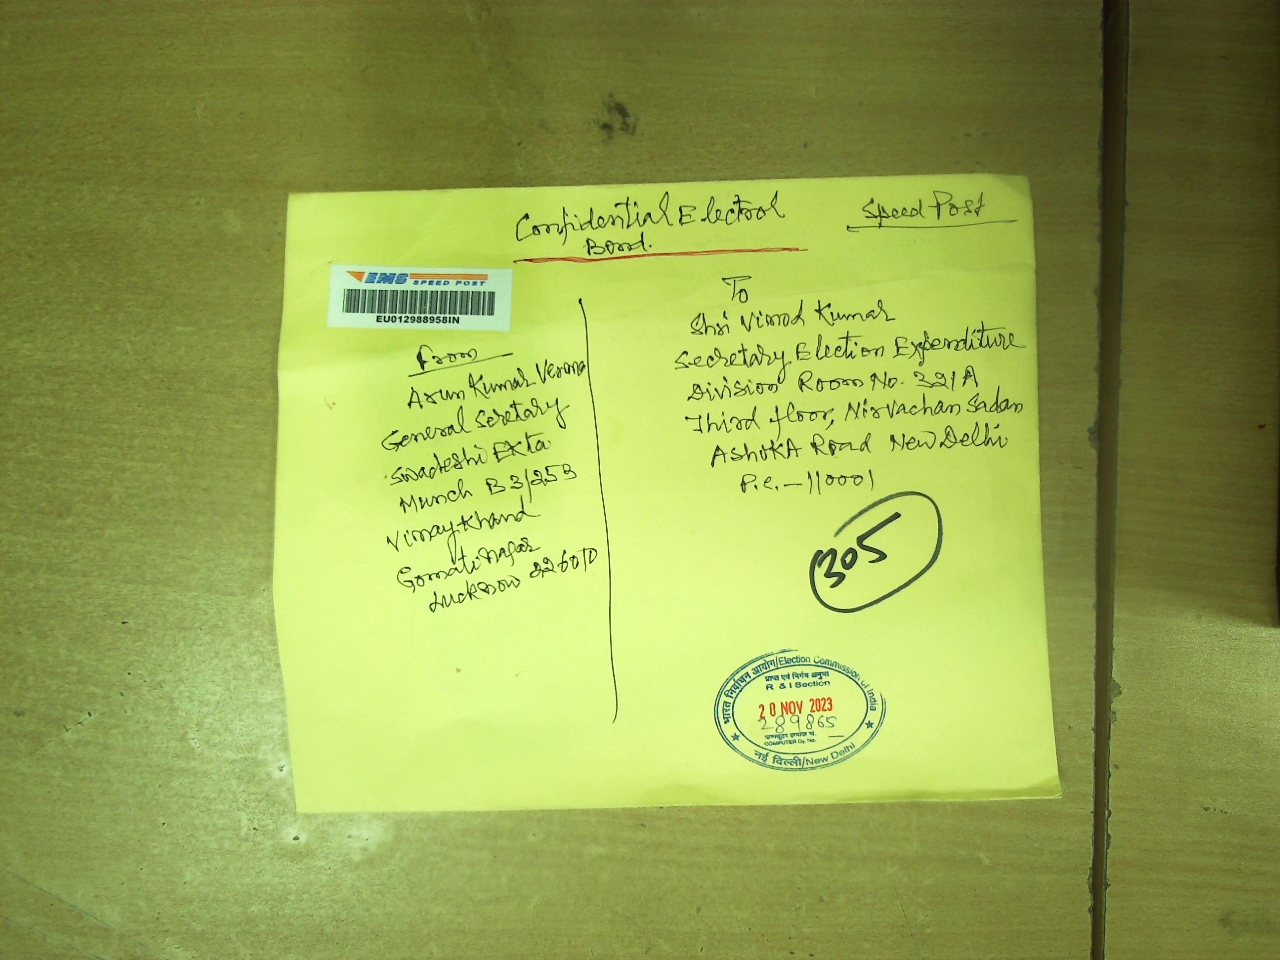 Confidential Electrol
Bond.
Speed Post
EMS SPEED POST
EU012988958IN
From
Arun Kumar Verma
General Secretary
Swadeshi Ekta
Munch B 3/253
Vinay Khand
Gomati nagar
Lucknow 226010
To
Shri Vinod Kumar
Secretary Election Expenditure
Division Room No. 321A
Third floor, Nirvachan Sadan
AshokA Road New Delhi
P.c. - 110001
305
भारत निर्वाचन आयोग/Election Commission of India
प्राप्त एवं निर्गम अनुभाग
R & I Section
20 NOV 2023
289865
COMPUTER Dy. No.
नई दिल्ली/New Delhi